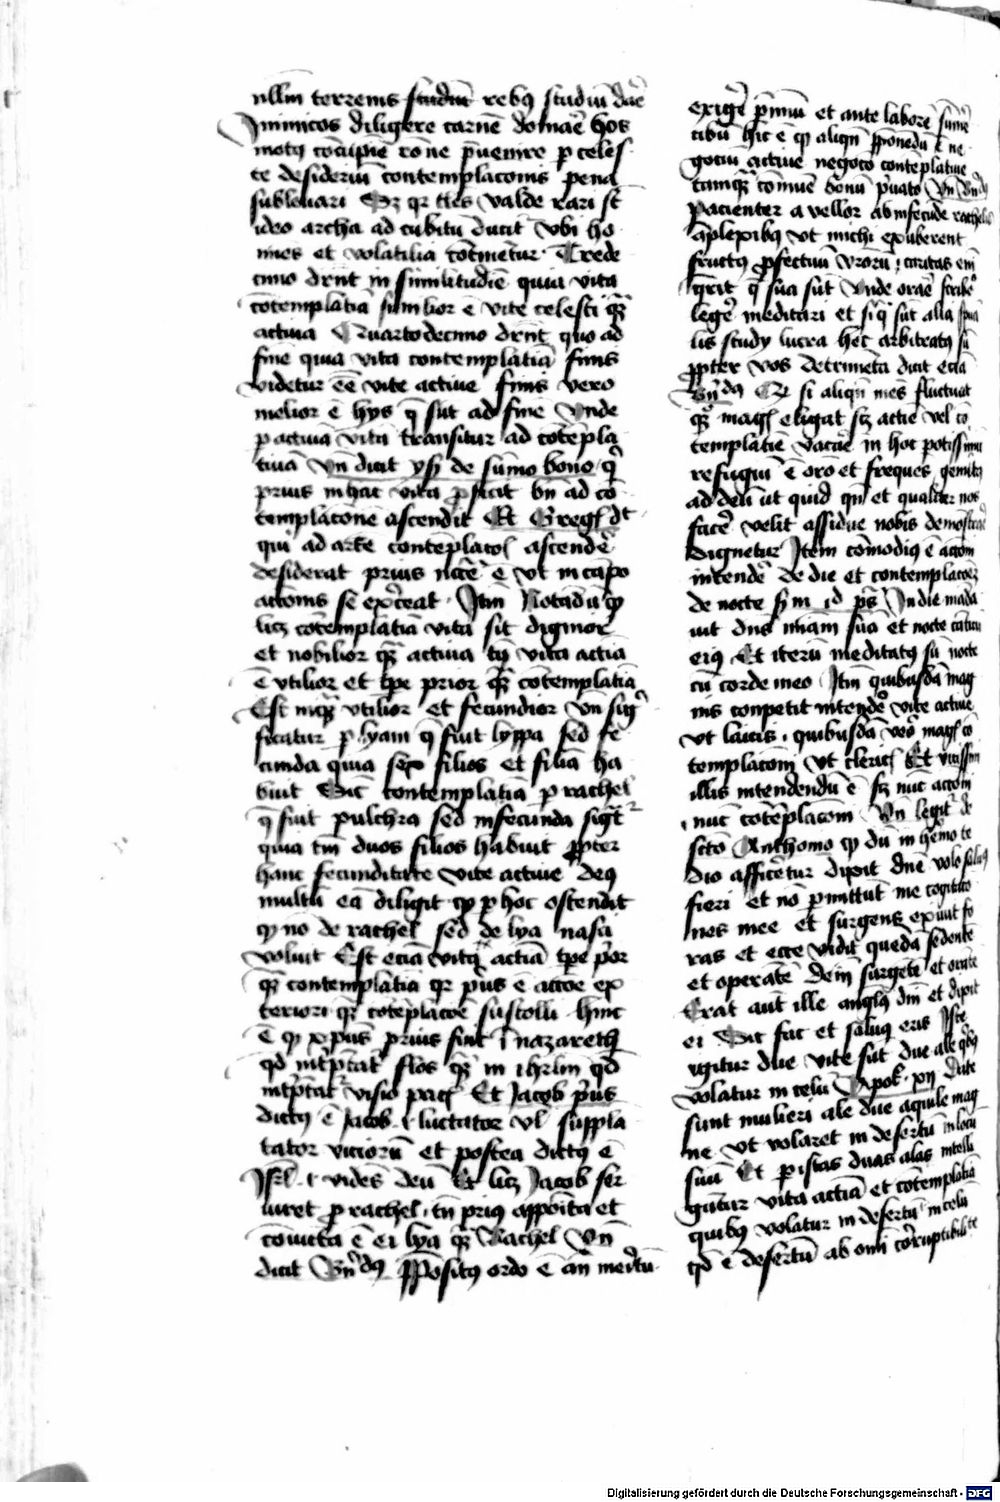 nllm terrenis studiū rebꝫ studiū dare
Inimicos diligere carnē domare hos
motꝰ cōcupie rōne p̄uenire p celes
te desideriū contemplacōnis pena
subleuari Sꝫ qr tles valde rari st̄
ideo archa ad cubitū ducit̄ vbi ho
mines et volatilia cōtinētur Trede
cimo dnt̄ in similitudīe quia vita
cōtemplatiā similior ē vite celesti qꝫ
actiua Quartodecimo dnt̄ quo ad
finē quia vita contemplatiā finis
videtur eē vite actiue finis vero
melior ē hys q̄ sūt ad finē Vnde
p actiuā vitā transitur ad cōtēpla
tiuā vn̄ dicit ysi de sūmo bono qi
prius in hac vita pficit bn̄ ad cō
templacōnē ascendit Et Gregꝰ dt
qui ad arcē contēplacōis ascendē
desiderat prius nccē ē vt in cāpo
actōnis se exerceat Itm̄ Notādū qꝫ
licꝫ cōtemplatiā vita sit dignior
et nobilior qꝫ actiua tn̄ vita actiā
ē vtilior et tpe prior qꝫ cōtemplatiā
Est inqꝫ vtilior et fecundior Vn̄ sigī
ficatur p lyam q̄ fuit lyppa sed fe
cunda quia sex filios et filiā ha
buit Sic contemplatiā p rachel
q̄ fuit pulchra sed infecunda sigt̄
quia tm̄ duos filios habuit ppter
hanc fecunditatē vite actiue deꝰ
multū eā diligit qꝫ p hoc ostendit
qꝫ no de rachel sed de lya nasci
voluit Est eciā vitꝫ actiā tpe p̄or
qꝫ contemplatiā qr p̄us ē actōe ex
teriori qꝫ cōtēplacōe sustolli hinc
ē qꝫ xp̄us prius fuit ī nazareth
qd̄ intp̄tat̄ flos qꝫ in ihrlm̄ qd̄
intp̄tat̄ visio pacꝭ Et Jacob p̄us
dictꝰ ē Jacob .i. luctator vl suppla
tator vicioꝝ et postea dictꝰ ē
Isrl̄ .i. vidēs deū Et licꝫ Jacob ser
uiret p rachel tn̄ priꝰ apponīta et
cōiūcta ē ei lya qꝫ Rachel Vn̄
dicit Bn̄dꝰ Pposterꝰ ordo ē an̄ meritū
exigē p̄miū et ante laborē sumē
cibū hic ē qꝫ aliqn̄ pponēdū ē ne
gociū actiue negocō contēplatiue
tamqꝫ cōmūe bonū p̄uato Vn̄ Bn̄dꝰ
Pacienter a vellor ab infecūde rachelis
aplexibꝰ vt michi exuberent
fructꝰ pfectuū vr̄orū, caritas eīn
q̄rit q̄ sūa sūt Vnde orare scribē
legē meditari et siq̄ sūt alia spūa
lis study lucra hec arbitratꝰ sū
ppter vos detrimēta dicit eciā
Bn̄dꝰ Qr si aliqn̄ mēs fluctuat
qꝫ magꝭ eligat scꝫ actiē vel cō
templatiē vacāe in hoc potissimū
refugiū ē orō et freqēs gemitꝰ
ad deū ut quid qn̄ et qualiter nos
facē velit assidue nobis demostrare
dignetur Itēm cōmodiꝰ ē actōni
intendē de die et contemplacōi
de nocte Sm̄ id ps̄ In die māda
uit dns miām suā et nocte cāticū
eiꝰ Et iterū meditatꝰ sū nocte
cū corde meo Itm̄ quibusdā mag
nis conpetit intendē vite actiue
vt laicis, quibusdā vero magꝭ cō
templacōni vt clericꝭ Et vicissim
illis intendendū ē scꝫ nūc actōni
nūc cōtēplacōni Vn̄ legit̄ de
sctō Anthonio qꝫ dū in heremo te
dio afficētur dixit dnē volo saluꝰ
fieri et nō p̄mittūt me cogitatō
nes mee et surgens exiuit fo
ras et ecce vidit quēdā sedente
et operātē dein̄ surgētē et orāte
Erat aut̄ ille anglꝰ dnī et dixit
ei Sic fac et saluꝰ eris Iste
igitur due vite sūt due ale qbꝫ
volatur in celū Apok. xij Date
sunt mulieri ale due aquile mag
ne vt volaret in desertū in locū
suū Et p istas duas alas intelli
gūtur vita actiā et cōtēplatiā
quibꝰ volatur in desertū in celū
qd̄ ē desertū ab omī corruptibilitate
Digitalisierung gefördert durch die Deutsche Forschungsgemeinschaft - DFG